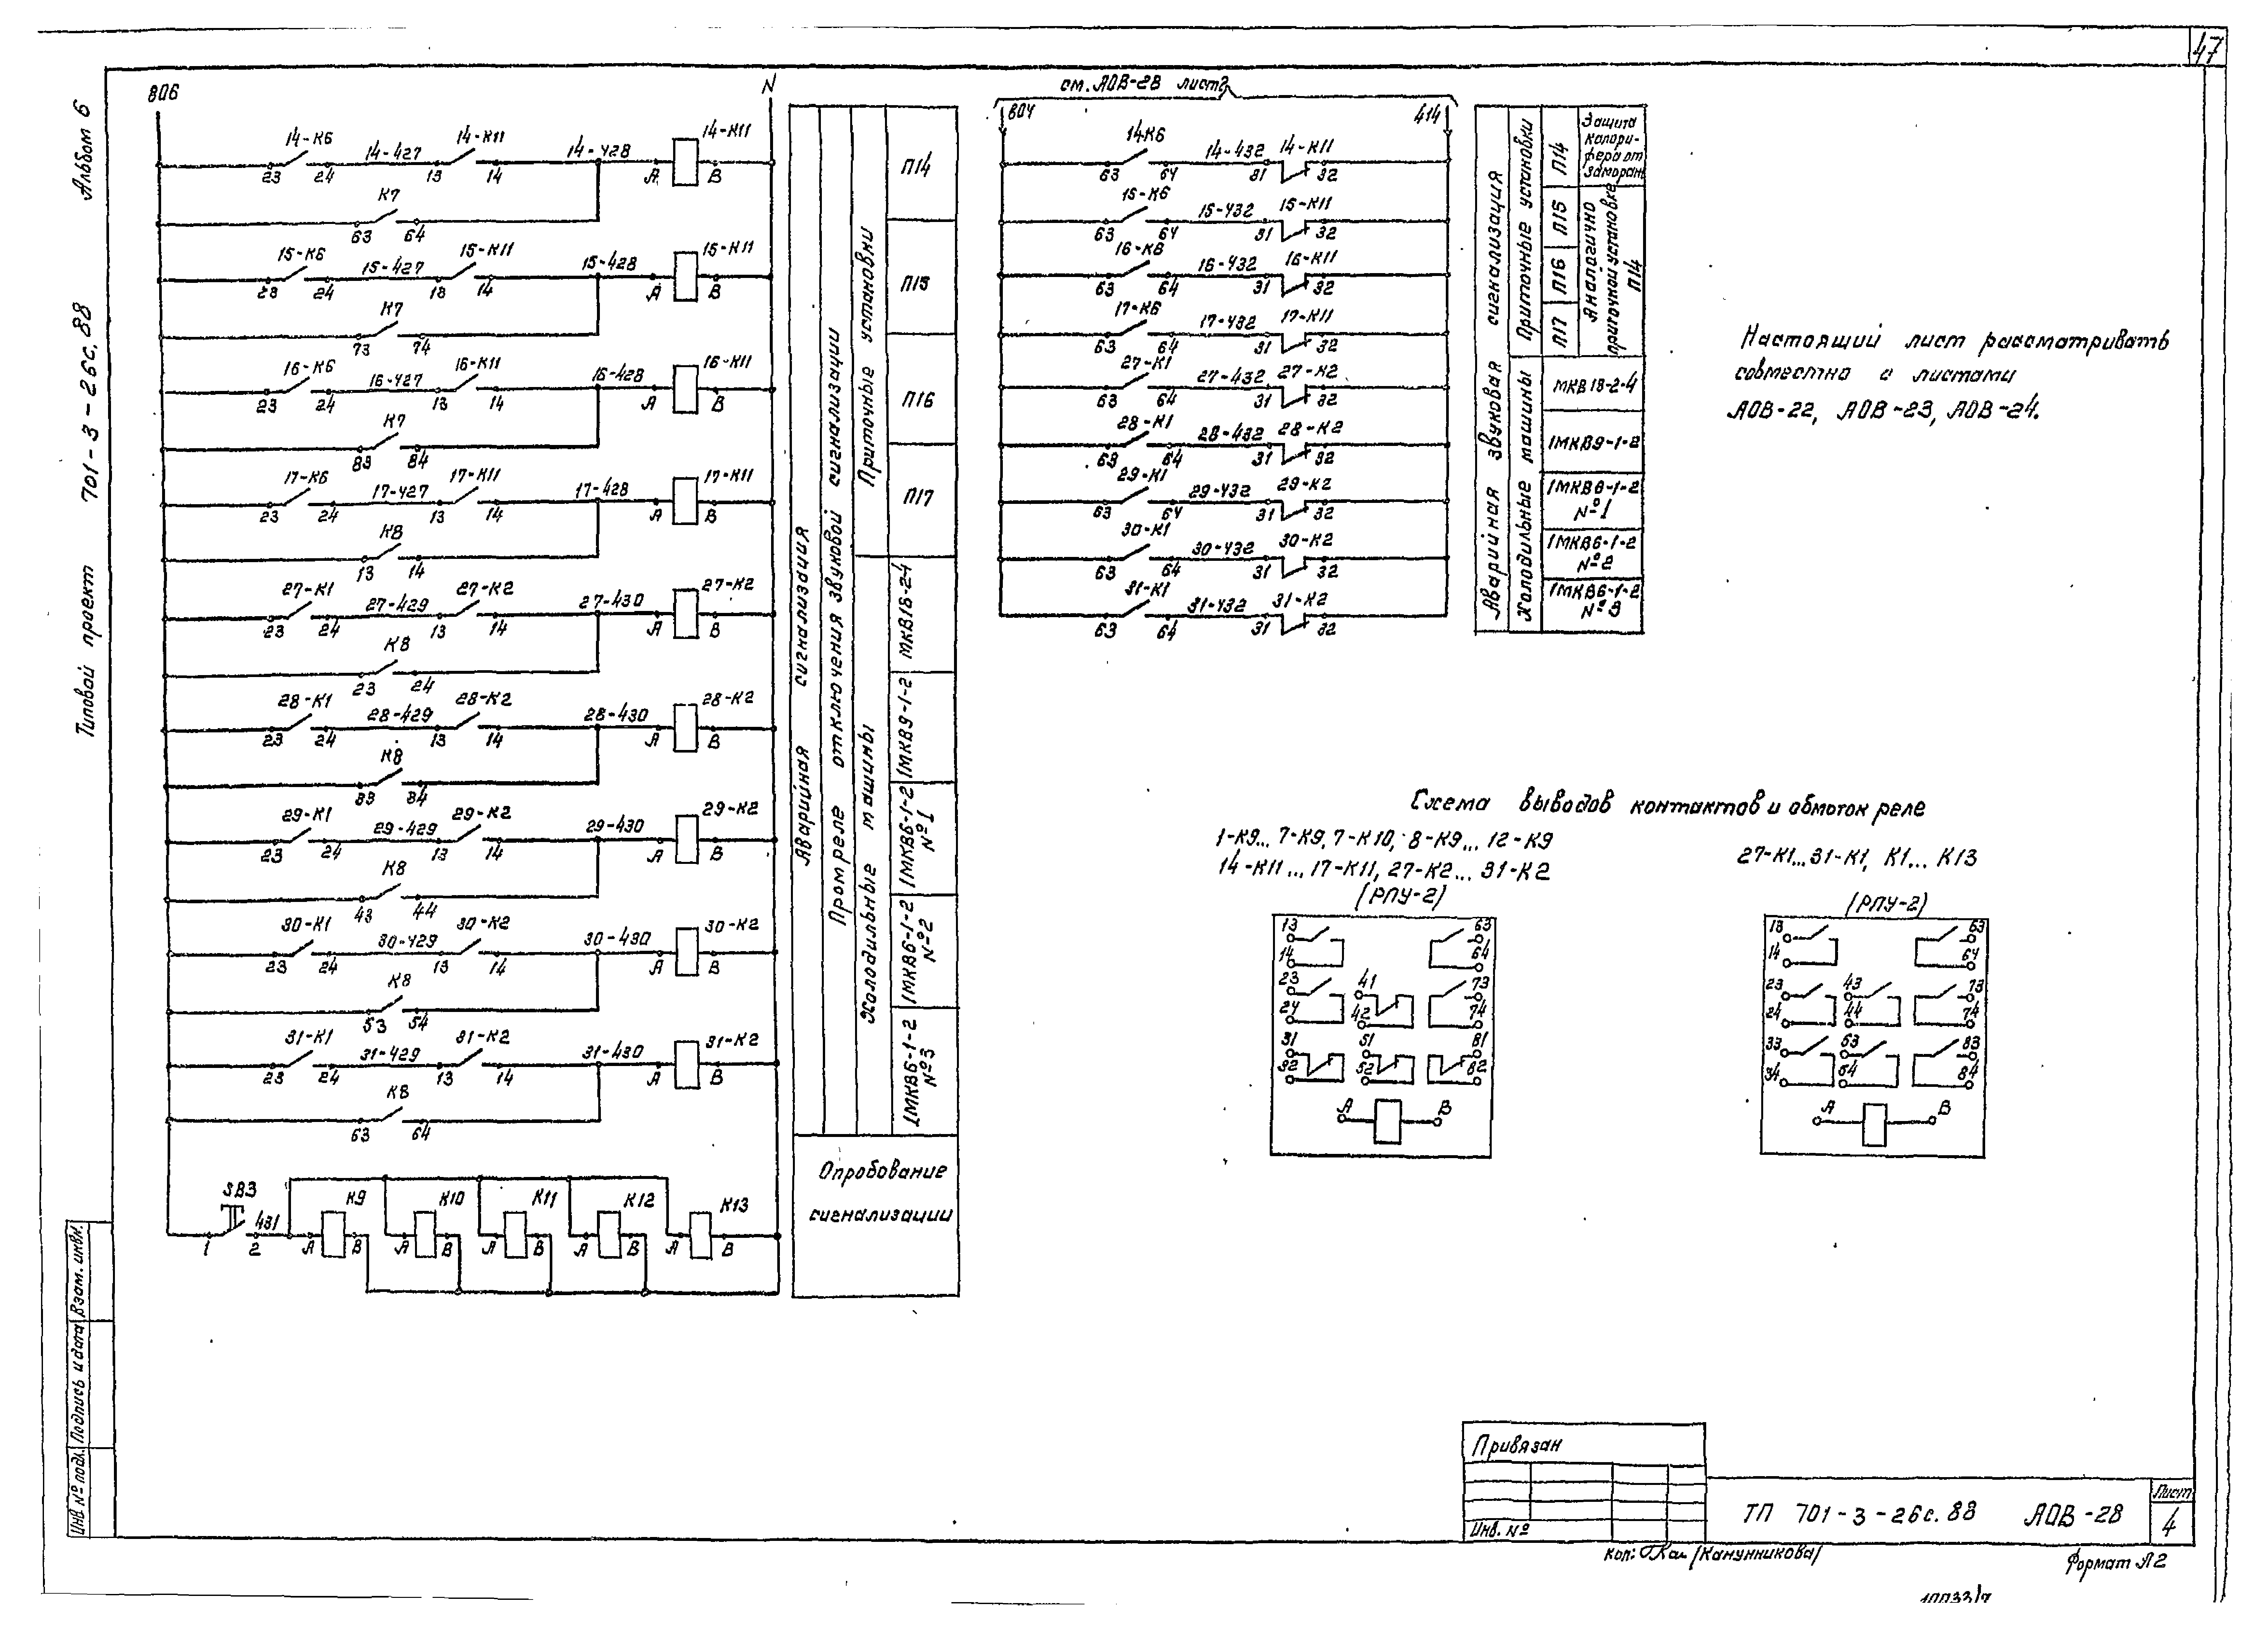 47
Альбом 6
Типовой проект 701-3-26с.88
806
N
14-К6 14-427 14-К11 14-428 14-К11
23 24 13 14 А В
К7
63 64
15-К6 15-427 15-К11 15-428 15-К11
23 24 13 14 А В
К7
73 74
16-К6 16-427 16-К11 16-428 16-К11
23 24 13 14 А В
К7
83 84
17-К6 17-427 17-К11 17-428 17-К11
23 24 13 14 А В
К8
13 14
27-К1 27-429 27-К2 27-430 27-К2
23 24 13 14 А В
К8
23 24
28-К1 28-429 28-К2 28-430 28-К2
23 24 13 14 А В
К8
33 34
29-К1 29-429 29-К2 29-430 29-К2
23 24 13 14 А В
К8
43 44
30-К1 30-429 30-К2 30-430 30-К2
23 24 13 14 А В
К8
53 54
31-К1 31-429 31-К2 31-430 31-К2
23 24 13 14 А В
К8
63 64
SB3 431 К9 К10 К11 К12 К13
1 2 А В А В А В А В А В
Аварийная сигнализация
Пром реле отключения звуковой сигнализации
Приточные установки
Холодильные машины
П14
П15
П16
П17
МКВ18-2-4
1МКВ9-1-2
1МКВ6-1-2
№1
1МКВ6-1-2
№2
1МКВ6-1-2
№3
Опробование
сигнализации
см. АОВ-28 лист2
804
414
14К6 14-432 14-К11
63 64 31 32
15-К6 15-432 15-К11
63 64 31 32
16-К6 16-432 16-К11
63 64 31 32
17-К6 17-432 17-К11
63 64 31 32
27-К1 27-432 27-К2
63 64 31 32
28-К1 28-432 28-К2
63 64 31 32
29-К1 29-432 29-К2
63 64 31 32
30-К1 30-432 30-К2
63 64 31 32
31-К1 31-432 31-К2
63 64 31 32
Аварийная звуковая сигнализация
Приточные установки
Холодильные машины
П14
П15
П16
П17
Защита
калори-
фера от
заморан.
Аналогично
приточной установке
П14
МКВ18-2-4
1МКВ9-1-2
1МКВ6-1-2
№1
1МКВ6-1-2
№2
1МКВ6-1-2
№3
Настоящий лист рассматривать
совместно с листами
АОВ-22, АОВ-23, АОВ-24.
Схема выводов контактов и обмоток реле
1-К9... 7-К9, 7-К10, 8-К9... 12-К9
14-К11... 17-К11, 27-К2... 31-К2
(РПУ-2)
13 63
14 64
23 41 73
24 42 74
31 51 81
32 52 82
А В
27-К1...31-К1, К1... К13
(РПУ-2)
13 63
14 64
23 43 73
24 44 74
33 53 83
34 54 84
А В
Взам. инв.№
Подпись и дата
Инв № подл.
Привязан
Инв. №
ТП 701-3-26с.88 АОВ-28
Лист
4
Коп: (Канунникова)
Формат А2